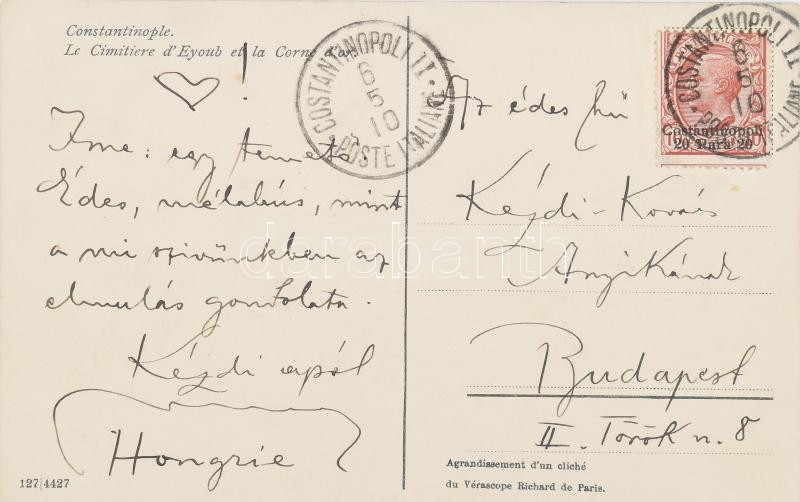 Constantinople.
Le Cimitiere d'Eyoub et la Corne d'or
!
Ime: egy temető
Édes, mélabús, mint
a mi szivünkben az
elmulás gondolata.
Kézdi apó
Hongrie
127/4427
COSTANTINOPOLI II
6
5
10
POSTE ITALIANE
Az édes hű
Kézdi-Kovács
Anyikának
Budapest
II. Török u. 8
Agrandissement d'un cliché
du Vérascope Richard de Paris.
Costantinopoli
20 Para 20
COSTANTINOPOLI II
6
5
10
POSTE ITALIANE
darabanth